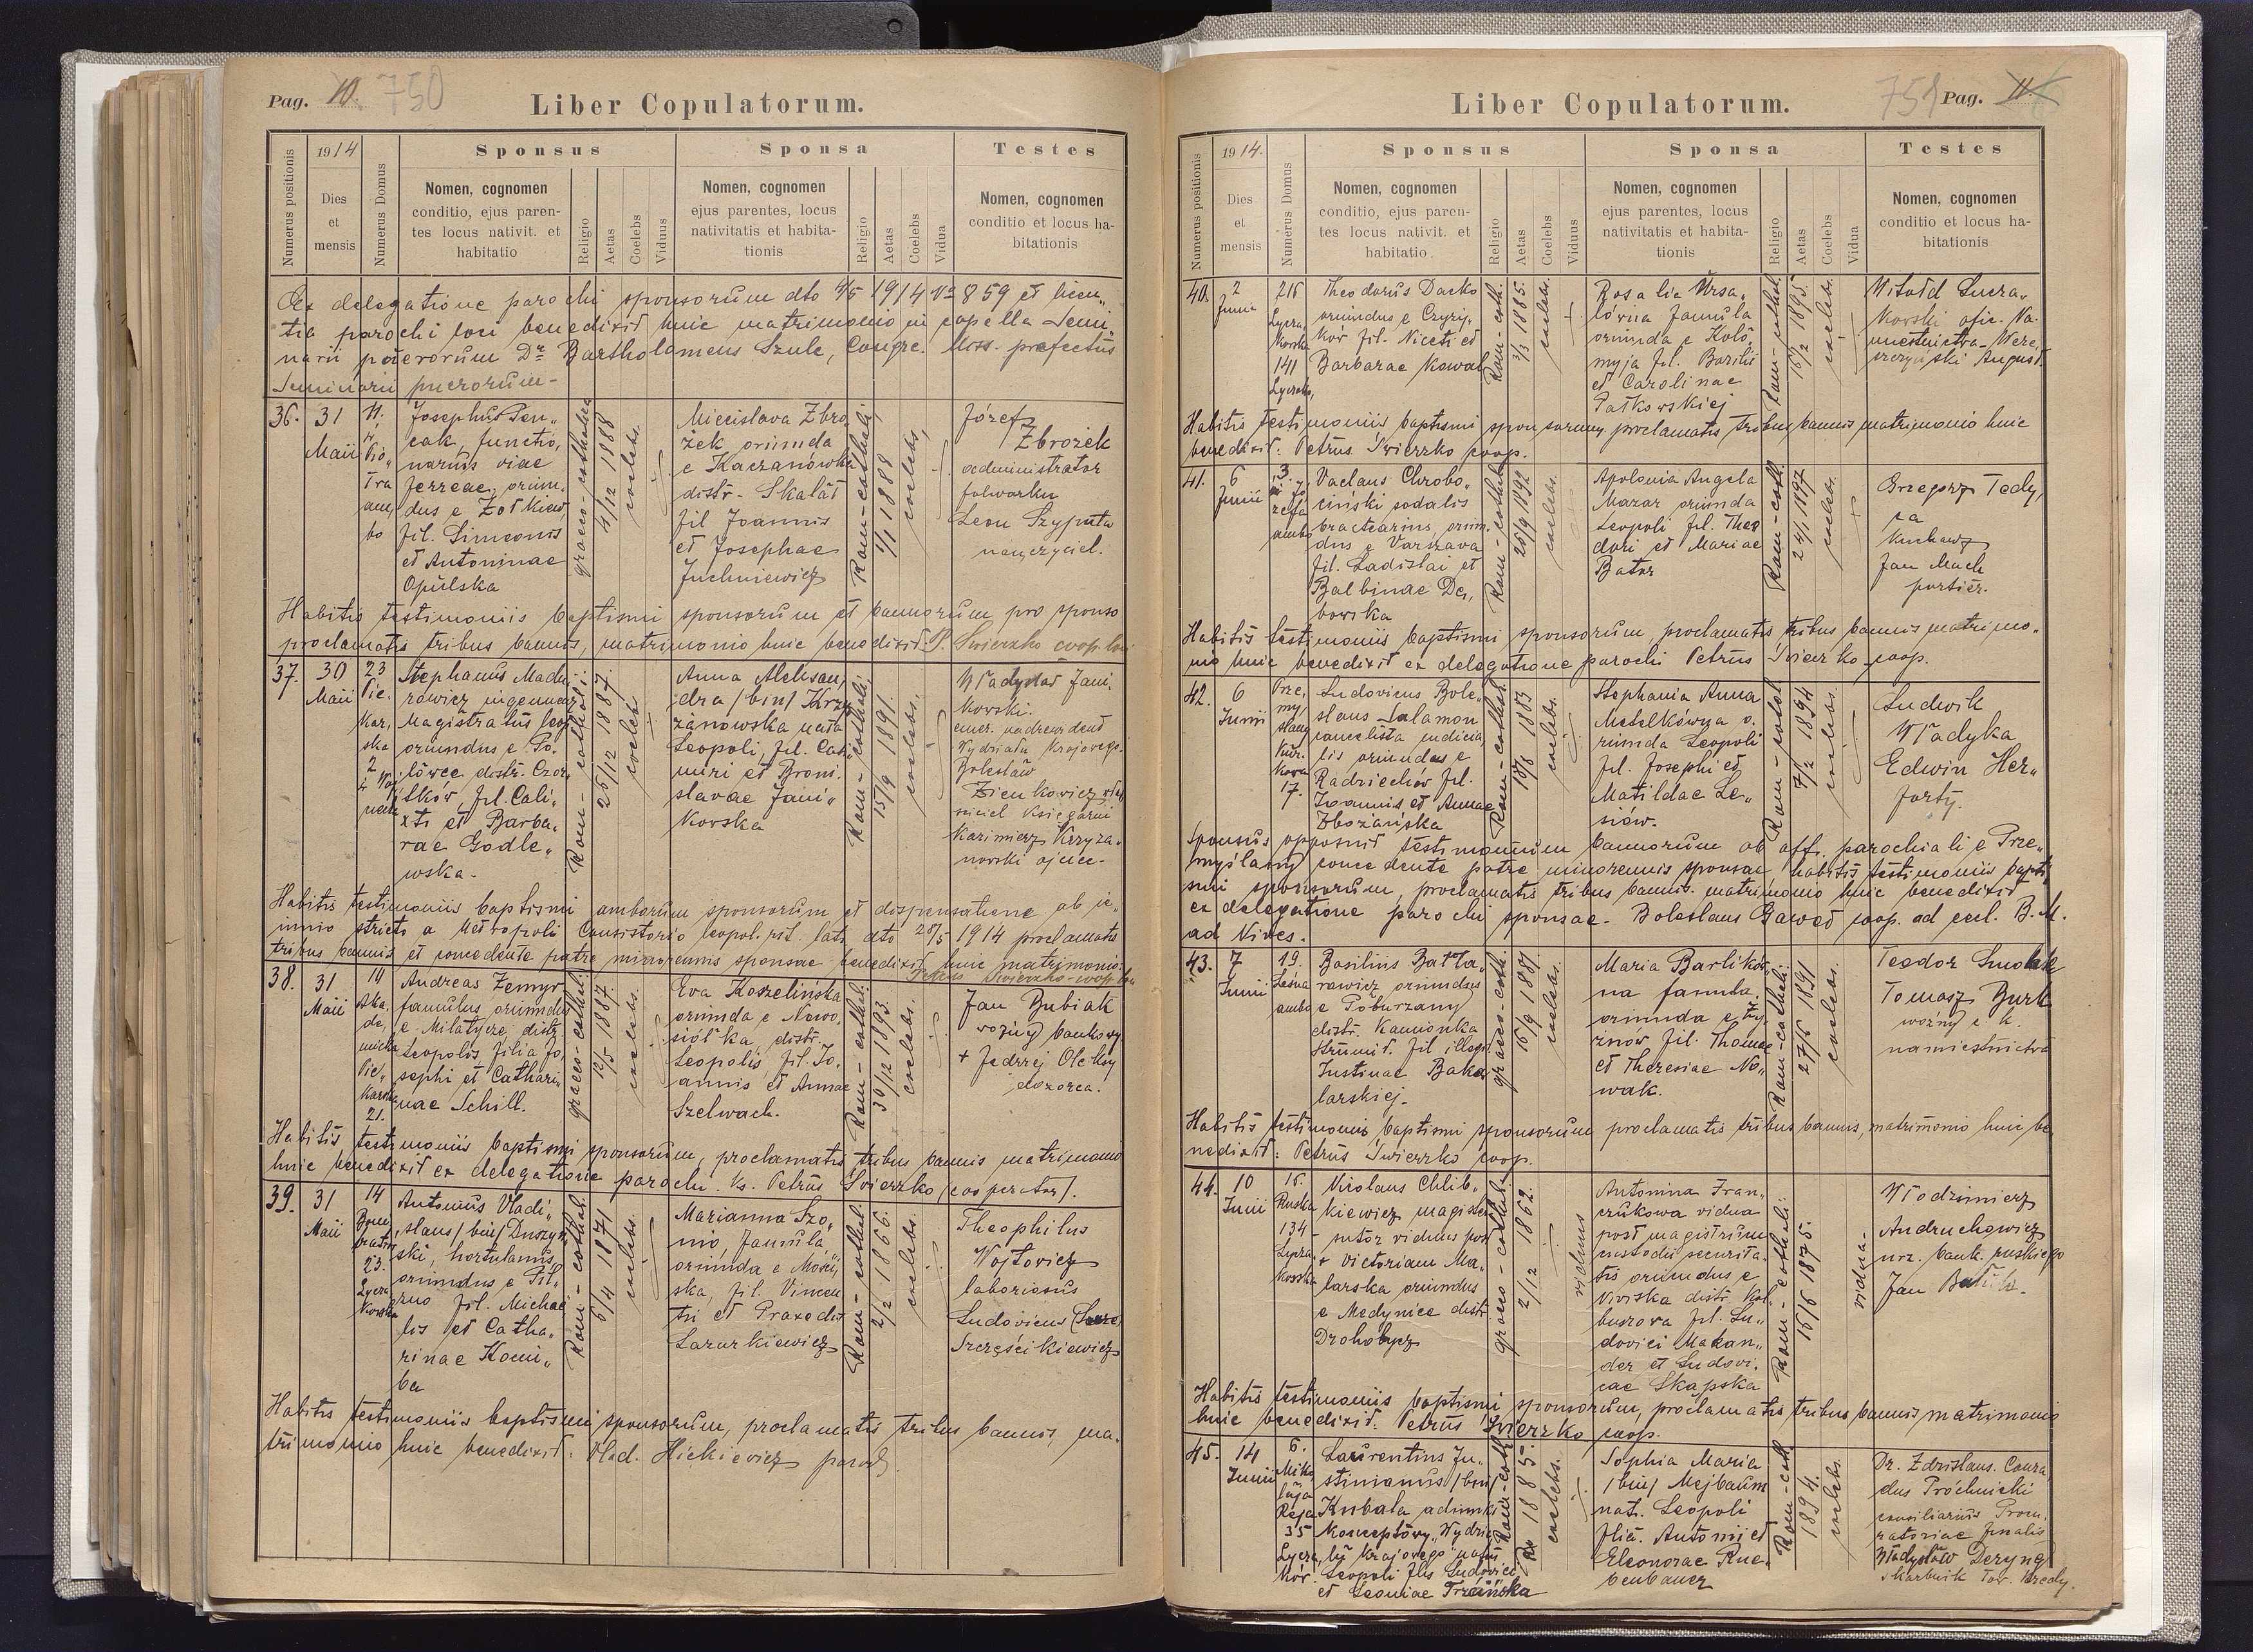 Pag. 10. 750
Liber Copulatorum.
Numerus positionis
1914
Dies
et
mensis
Numerus Domus
Sponsus
Nomen, cognomen
conditio, ejus paren-
tes locus nativit. et
habitatio
Religio
Aetas
Coelebs
Viduus
Sponsa
Nomen, cognomen
ejus parentes, locus
nativitatis et habita-
tionis
Religio
Aetas
Coelebs
Vidua
Testes
Nomen, cognomen
conditio et locus ha-
bitationis
Ex delegatione parochi sponsorum dto 4/5 1914 No 859 et licen„
tia parochi loci benedixit huic matrimonio in capella Semi„
narii puerorum Dr Bartholomeus Szulc, Congre. Miss. prefectus
Seminarii puerorum-
36.
31
Maii
11.
Pio„
tra
am„
bo
Josephus Pen„
cak, functio„
narius viae
ferreae, oriun„
dus e Żółkiew
fil. Simeonis
et Antoninae
Opulska
graeco-catholica
4/12 1888
coelebs.
Miecislava Zbro„
żek oriunda
e Kaczanówka
distr. Skałat
fil Joannis
et Josephae
Juchniewicz
Rom-catholi.
1/1 1888
coelebs.
Józef
Zbrożek
administrator
folwarku
Leon Szyputa
nauczyciel.
Habitis testimoniis baptismi sponsorum et bannorum pro sponso
proclamatis tribus bannis, matrimonio huic benedixit. P. Swierzko coop. loci
37.
30
Maii
23
Pie.
kar„
ska
2
Stephanus Madej„
rowicz ingenieur
Magistratus Leop.
oriundus e Po„
łowce distr. Czor„
tków, fil. Cali„
xti et Barba„
rae Godle„
wska-
Rom-catholi.
26/12 1887.
coeleb
Anna Aleksan„
dra /bin/ Krzy„
żanowska nata
Leopoli, fil. Casi„
miri et Broni„
slavae Jani„
kowska
Rom-catholi.
15/9 1891.
coelebs.
Władysław Jani„
kowski.
emer. nadrewident
Wydziału Krajowego.
Bolesław
Zienkowicz wła„
ściciel Księgarni
Kazimierz Krzyża„
nowski ojciec-
Habitis testimoniis baptismi amborum sponsorum et dispensatione ab ie„
iunio stricto a Metropoli Consistorio Leopol. rit. lat. dto 28/5 1914 proclamatis
tribus bannis et concedente patre minorennis sponsae benedixit huic matrimonio
Petrus Świerzko-coop. loci
38.
31
Maii
10
Aka„
de„
micka
Pie„
karska
21.
Andreas Zemyr
famulus oriundus
e Milatycze distr.
Leopolis filia Jo„
sephi et Cathari„
nae Schill.
graeco-catholi.
12/5 1887.
coelebs.
Eva Koszelińska
oriunda e Nowo„
siółka, distr.
Leopolis, fil. Jo„
annis et Annae
Szelwach.
Rom-catholi.
30/12 1893.
coelebs.
Jan Bubiak
woźny bankowy
+ Jędrzej Olchy
dozorca.
Habitis testimoniis baptismi sponsorum, proclamatis tribus bannis matrimonio
huic benedixit ex delegatione parochi. Ks. Petrus Świerzko /cooperator/.
39.
31
Maii
14
23.
Łycza
kowska
Antonius Vladi„
slaus /bin/ Duszyń„
ski, hortulanus,
oriundus e Pil„
zno fil. Michae„
lis et Catha„
rinae Komi„
ba
Rom-cathol.
6/4 1871
coelebs.
Marianna Szo„
nió famula
oriunda e Mości„
ska, fil. Vincen
tii et Praxedis
Lazurkiewicz
Rom-cathol.
2/2 1866.
coelebs.
Theophilus
Wojtowicz
laboriosus
Ludovicus
Szcześcikiewicz
Habitis testimoniis baptismi sponsorum, proclamatis tribus bannis, ma„
trimonio huic benedixit: Vlad. Hickiewicz paroch
751 Pag. 11.
Liber Copulatorum.
Numerus positionis
1914.
Dies
et
mensis
Numerus Domus
Sponsus
Nomen, cognomen
conditio, ejus paren-
tes locus nativit. et
habitatio
Religio
Aetas
Coelebs
Viduus
Sponsa
Nomen, cognomen
ejus parentes, locus
nativitatis et habita-
tionis
Religio
Aetas
Coelebs
Vidua
Testes
Nomen, cognomen
conditio et locus ha-
bitationis
40.
2
Junii
216
Łycza„
kowska
141
Łyczak,
Theodorus Dacko
oriundus e Czyży„
ków fil. Niceti et
Barbarae Kowal
Rom-cath.
3/3 1885.
coelebs.
Rosalia Ursa„
lówna famula
oriunda e Koło„
myja fil. Basilii
et Carolinae
Pałkowskiej
Rom-cathol.
16/2 1895.
coelebs.
Witołd Łucza„
kowski ofic. Na„
miestnictwa- Were„
szczyński August.
Habitis testimoniis baptismi sponsorum, proclamatis tribus bannis matrimonio huic
benedixit: Petrus Świerzko coop.
41.
6
Junii
3.
Jó„
zefa
ambo
Vaclaus Chrobo„
ciński sodalis
bractearius, oriun„
dus e Varszava
fil. Ladislai et
Balbinae De„
bowska
Rom-cathol.
28/9 1892
coelebs.
Apolonia Angela
Mazar oriunda
Leopoli fil. Theo
dori et Mariae
Bator
Rom-cath.
24/1 1897
coelebs.
Grzegorz Tedy„
ra
kucharz
Jan Mach
portier.
Habitis testimoniis baptismi sponsorum, proclamatis tribus bannis matrimo„
nio huic benedixit ex delegatione parochi Petrus Świerzko coop.
42.
6
Junii
Prze„
my„
slany
Kur„
kowa
17.
Ludovicus Bole„
slaus Salamon
cancelista judicia„
lis oriundus e
Radziechów fil.
Joannis et Annae
Zbożańska
Rom-cathol.
18/8 1883
coelebs.
Stephania Anna
Metelkówna o„
riunda Leopoli
fil. Josephi et
Matildae Le„
siów.
Rom-cathol
7/2 1894
coelebs.
Ludwik
Władyka
Edwin Her„
forty.
Sponsus apposuit testimonium bannorum ab off. parochiali e Prze„
myślany concedente patre minorennis sponsae habitis testimoniis bapti„
smi sponsorum, proclamatis tribus bannis. matrimonio huic benedixit
ex delegatione parochi sponsae- Boleslaus Gaweł coop. ad eccl. B. M.
ad Nives.
43.
7
Junii
19.
Leśna
ambo
Basilius Batła„
rowicz oriundus
e Poburzany
distr. Kamionka
Strumił. fil illegi.
Justinae Baka
larskiej-
graeco-cath.
16/9 1887.
coelebs.
Maria Barlików
na famula.
oriunda e Ży„
znów fil. Thomae
et Theresiae No„
wak.
Rom-catholi.
27/6 1891
coelebs.
Teodor Smolak
Tomasz Burk
woźny c. k
namiestnictwa
Habitis testimoniis baptismi sponsorum proclamatis tribus bannis, matrimonio huic be
nedixit: Petrus Świerzko coop.
44.
10
Junii
16.
Ruska
134
Łycza„
kowska
Nicolaus Chlib„
kiewicz magister
sutor viduus post
+ Victoriam Ma„
larska oriundus
e Medynice distr.
Drohobycz
graeco-cathol.
2/12 1862.
viduus
Antonina Fran„
czukowa vidua
post magistrum
custodii securita„
tis oriundus e
Wirska distr. Kol„
buszowa fil. Lu„
dovici Makan„
der et Ludovi„
cae Skąpska
Rom-catholi
16/6 1875.
vidua-
Włodzimierz
Andruchowicz
urz. bank. ruskiego
Jan
Habitis testimoniis baptismi sponsorum, proclamatis tribus bannis matrimonio
huic benedixit: Petrus Świerzko coop.
45.
14
Junii
6.
Miko
łaja
Reja
35
Łycza„
kow.
Laurentius Ju„
stinianus /bin/
Kubala adiunkt
Konceptowy „Wydzia
łu Krajowego" natus
Leopoli flis Ludovici
et Leoniae Trzcińska
Rom-cath.
1885.
coelebs.
Sophia Maria
/bin/ Mejbaum
nat. Leopoli
flia. Antonii et
Eleonorae Rue„
benbauer
Rom-cath
1894.
coelebs.
Dr. Zdzislaus. Conra
dus Próchnicki
consiliarius Procu„
ratoriae finalis
Władysław Deryng
skarbnik Tow. Kredy.